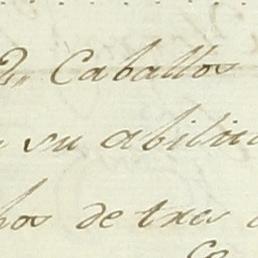 2, Caballos
su abilid
hos de tres